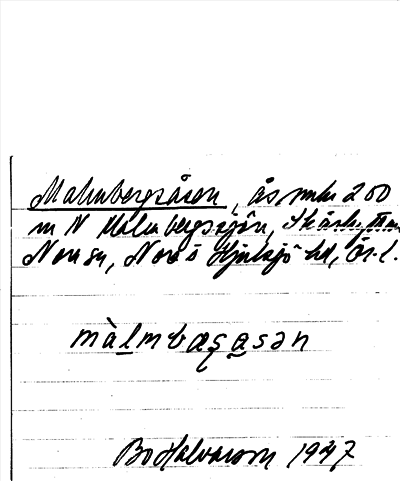 Malmbergsåsen, ås omkr 200
m N Malmbergssjön,
Nora sn, Nora o Hjulsjö hd, Ör. l.
màlmbæşasən
Bo Halvarson 1947